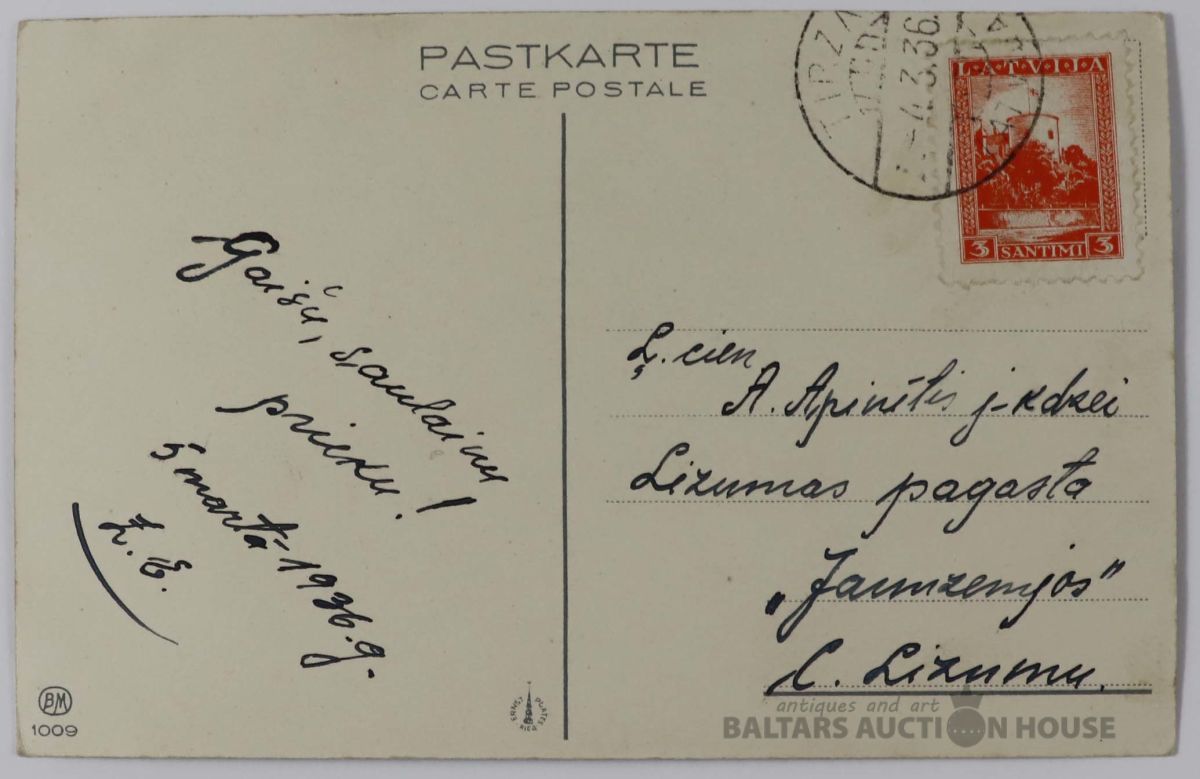 PASTKARTE
CARTE POSTALE
TIRZA
-4.3.36
LATVIJA
3 SANTIMI 3
Gaišu, saulainu
prieku!
5 martā 1936.g.
Z. E.
Ļ. cien
A. Apinītis j-kdzei
Lizumas pagasta
"Jaunzemjos"
C. Lizumu.
BM
1009
antiques and art
BALTARS AUCTION HOUSE